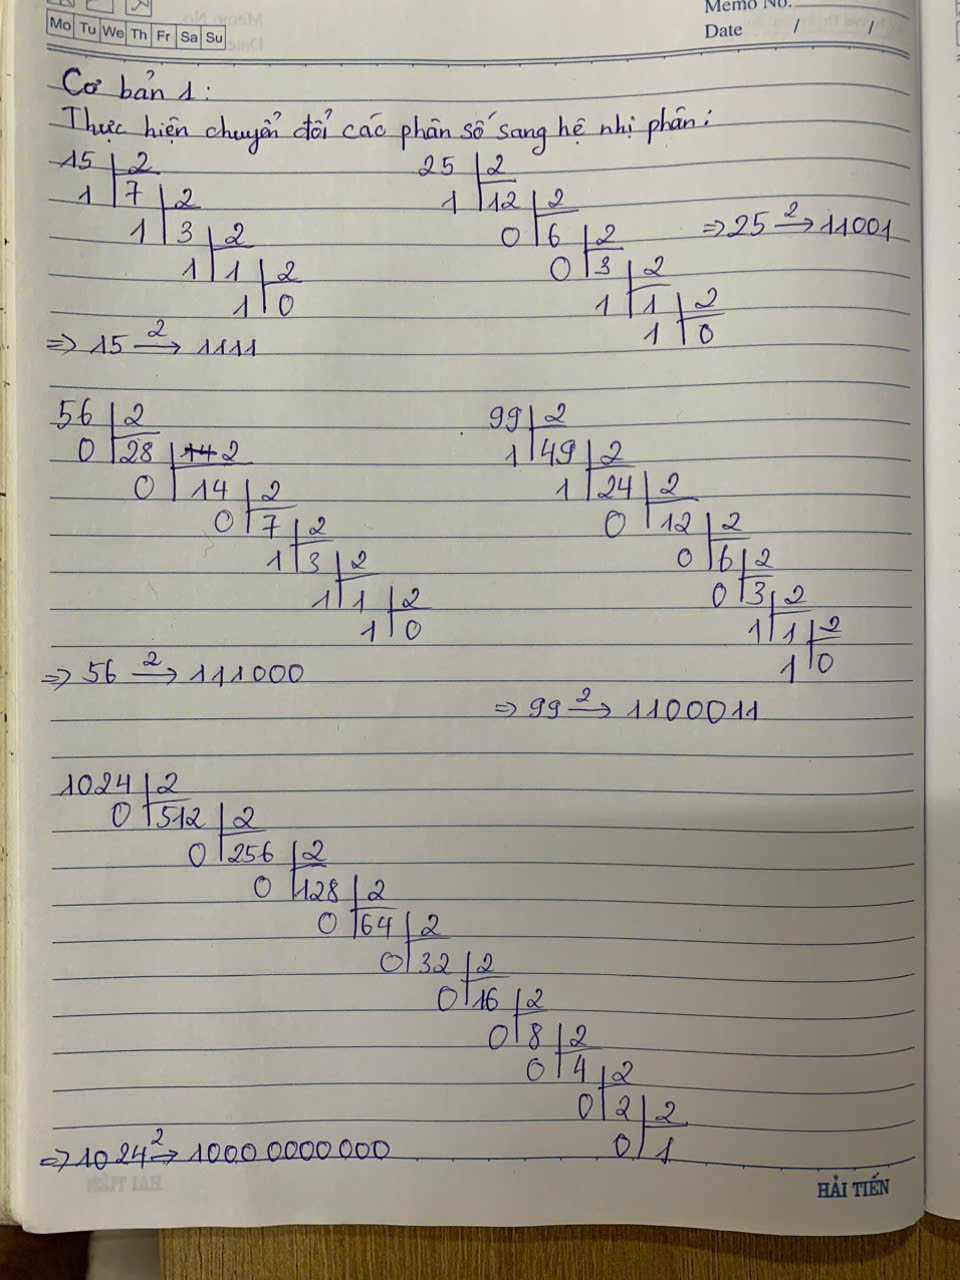 Memo No.
Mo Tu We Th Fr Sa Su
Date / /
Cơ bản 1:
Thực hiện chuyển đổi các phân số sang hệ nhị phân:
15 2
1 7 2
1 3 2
1 1 2
1 0
⇒ 15 2→ 1111
25 2
1 12 2
0 6 2
0 3 2
1 1 2
1 0
⇒ 25 2→ 11001
56 2
0 28 2
0 14 2
0 7 2
1 3 2
1 1 2
1 0
⇒ 56 2→ 111000
99 2
1 49 2
1 24 2
0 12 2
0 6 2
0 3 2
1 1 2
1 0
⇒ 99 2→ 1100011
1024 2
0 512 2
0 256 2
0 128 2
0 64 2
0 32 2
0 16 2
0 8 2
0 4 2
0 2 2
0 1
⇒ 1024 2→ 10000000000
HẢI TIẾN